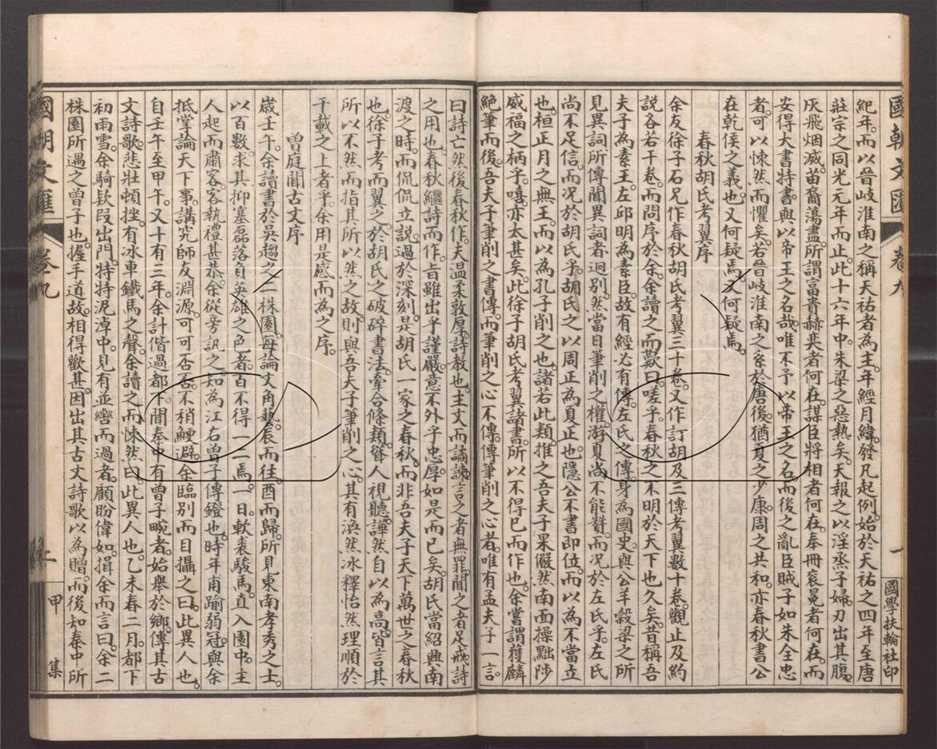 國朝文匯 卷九 一 國學扶輪社印
紀年而以晉岐淮南之稱天祐者為主年經月緯發凡起例始於天祐之四年至唐
莊宗之同光元年而止此十六年中朱梁之惡熱矣天報之以淫烝子婦刃出其腹
灰飛烟滅苗裔蕩盡所謂富貴赫奕者何在謀臣將相者何在奉冊袞冕者何在而
安得大書特書與以帝王之名哉唯不予以帝王之名而後之亂臣賊子如朱全忠
者可以悚然而懼矣若晉岐淮南之系於唐後猶夏之少康周之共和亦春秋書公
在乾侯之義也又何疑焉又何疑焉
春秋胡氏考翼序
余友徐子石兄作春秋胡氏考翼三十卷又作訂胡及三傳考翼數十卷觀止及約
說各若干卷而問序於余余讀之而歎曰嗟乎春秋之不明於天下也久矣昔稱吾
夫子為素王左邱明為素臣故有經必有傳左氏之傳身為國史與公羊穀梁之所
見異詞所傳聞異詞者迥別然當日筆削之權游夏尚不能贊而況於左氏乎左氏
尚不足信而況於胡氏乎胡氏之以周正為夏正也隱公不書即位而以為不當立
也桓正月之無王而以為孔子削之也諸若此類推之吾夫子果儼然南面操黜陟
威福之柄乎嘻亦太甚矣此徐子胡氏考翼諸書所以不得已而作也余嘗謂獲麟
絕筆而後吾夫子筆削之書傳而筆削之心不傳傳筆削之心者唯有孟夫子一言
曰詩亡然後春秋作夫溫柔敦厚詩教也主文而譎諫言之者無罪聞之者足戒詩
之用也春秋繼詩而作旨雖出乎謹嚴意不外乎忠厚如是而已矣胡氏當紹興南
渡之時而侃侃立說過於深刻是胡氏一家之春秋而非吾夫子天下萬世之春秋
也徐子考而翼之於胡氏之破碎書法牽合條類聳人視聽譁然自以為高皆言其
所以不然而指其所以然之故則與吾夫子筆削之心其有渙然冰釋怡然理順於
千載之上者乎余用是感而為之序
曾庭聞古文序
歲壬午余讀書於吳趨之二株園每論文角藝辰而往酉而歸所見東南孝秀之士
以百數求其抑塞磊落負英雄之色者百不得一二焉一日軟裘駿馬直入園中主
人起而肅客客執禮甚恭余從旁訊之知為江右曾子傳鐙也時年甫踰弱冠與余
抵掌論天下事講究師友淵源可可否否不稍鯁避余臨別而目攝之曰此異人也
自壬午至甲午又十有三年余計偕過都下聞秦中有曾子畹者始舉於鄉傳其古
文詩歌悲壯頓挫有冰車鐵馬之聲余讀之而悚然曰此異人也乙未春二月都下
初雨雪余騎欵段出門特特泥淖中見有並轡而過者顧盼偉如揖余而言曰余二
株園所遇之曾子也握手道故相得歡甚因出其古文詩歌以為贈而後知秦中所
國朝文匯 卷九 甲集